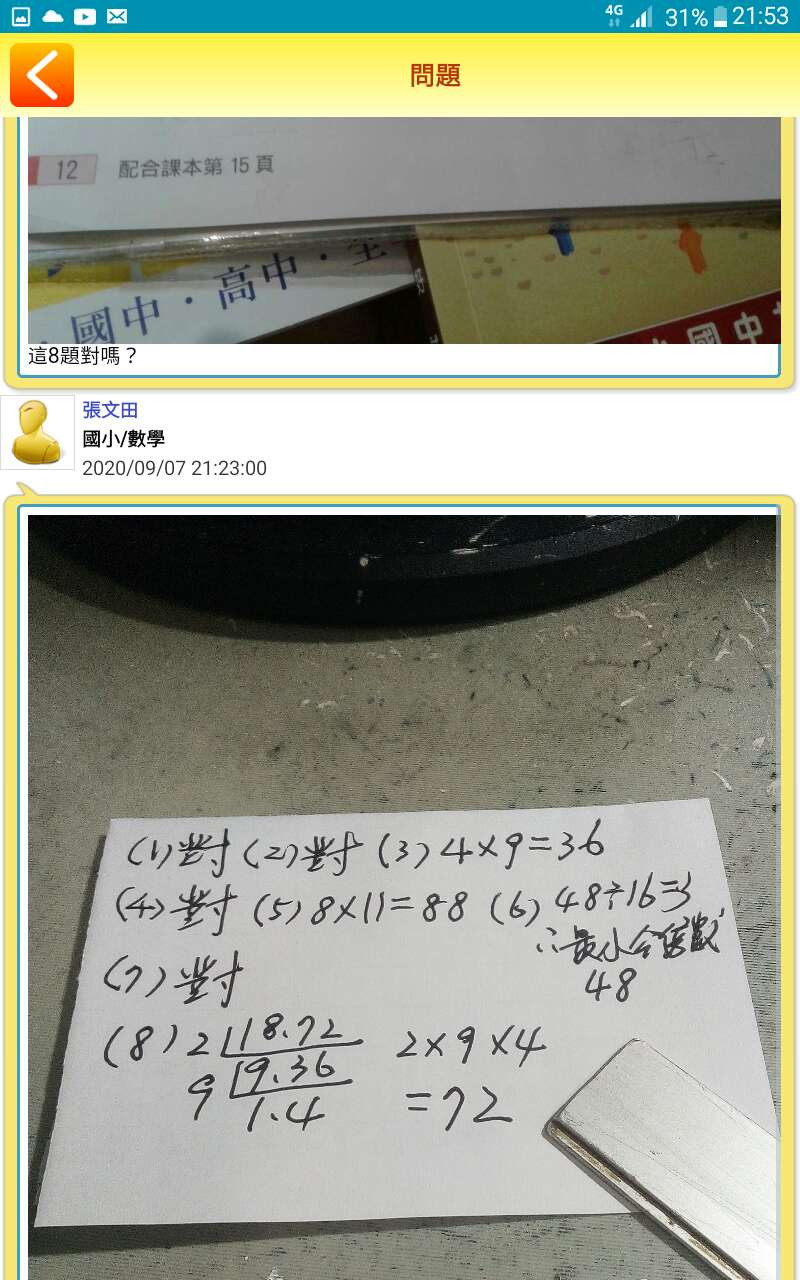 4G 31% 21:53
問題
12 配合課本第 15 頁
國中・高中・全
國中
這8題對嗎？
張文田
國小/數學
2020/09/07 21:23:00
(1)對 (2)對 (3) 4×9=36
(4)對 (5) 8×11=88 (6) 48÷16=3
∴最小公倍數
48
(7)對
(8) 2 18.72 2×9×4
9 9.36 =72
1.4